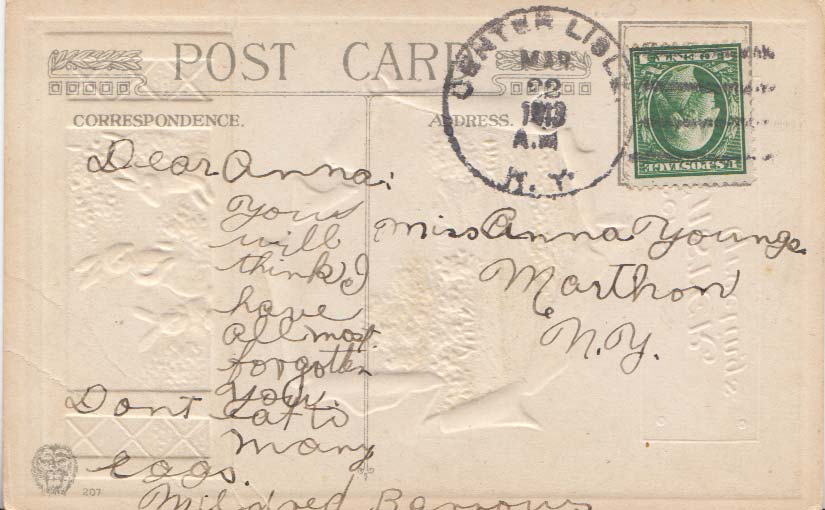 POST CARD
CENTER LISLE
MAR
22
1913
A.M
N.Y.
U.S. POSTAGE
CORRESPONDENCE.
ADDRESS.
Dear Anna:
You
will
think I
have
allmost
forgotten
you.
Dont eat to
many
eggs.
Mildred Barrows
Miss Anna Youngs
Marthon
N.Y.
207